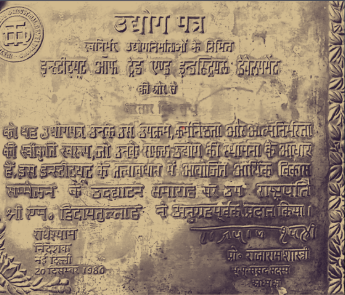 उद्योग पत्र
स्वनिर्मित उद्योगनिर्माताओं के निमित
इन्स्टीट्यूट ऑफ ट्रेड एण्ड इन्डस्ट्रियल डेवेलपमेंट
की ओर से
को यह उद्योगपत्र उनके उस उपक्रम, कर्मनिष्ठता और आत्मनिर्भरता
की स्वीकृति स्वरूप, जो उनके सफल उद्योग की स्थापना के आधार
है, इस इन्स्टीट्यूट के तत्वावधान में आयोजित आर्थिक विकास
सम्मेलन के उद्घाटन समारोह पर उप राष्ट्रपति
श्री एम. हिदायतुल्लाह ने अनुग्रहपूर्वक प्रदान किया।
राधेश्याम
निदेशक
नई दिल्ली
20 दिसम्बर 1980
प्रो. राजाराम शास्त्री